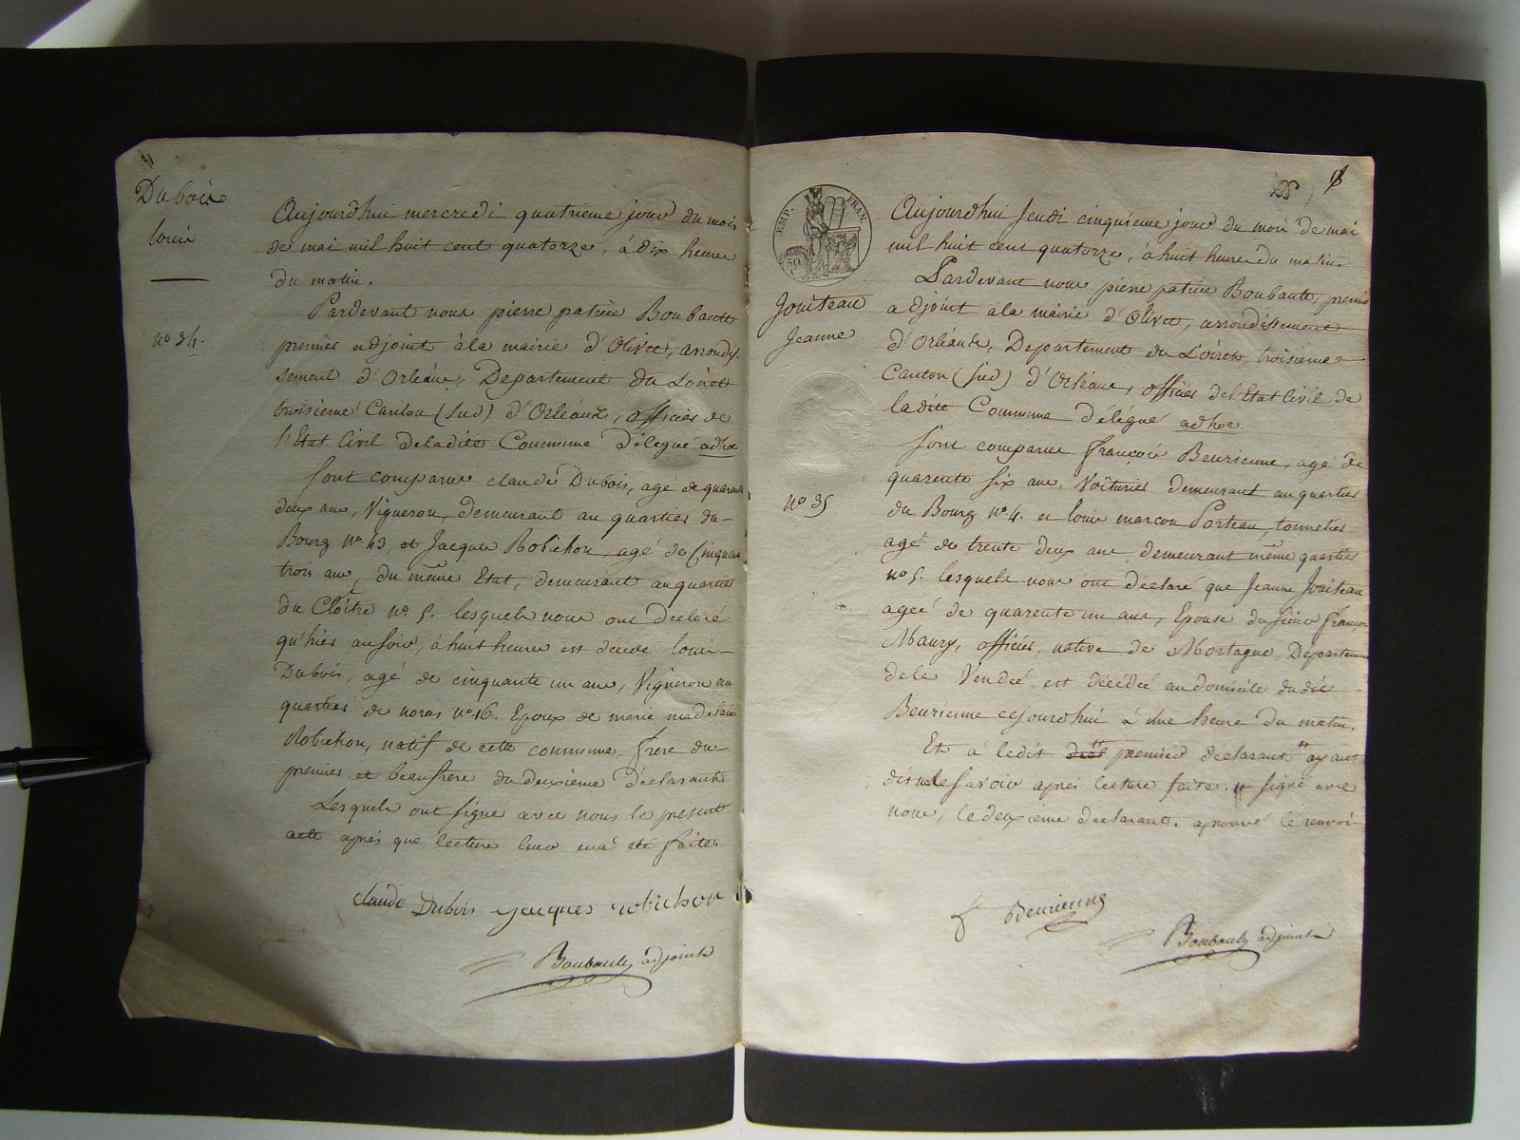 Dubois
Louis
n° 34.
Aujourdhui mercredi quatrieme jour du mois
de mai mil huit cent quatorze, à dix heures
du matin.
Pardevant nous pierre patrice Boubault
premier adjoint à la mairie d'Olivet, arrondis-
sement d'Orléans, Departement du Loiret
troisieme Canton (Sud) d'Orléans, officier de
l'Etat Civil deladite Commune délégué adhoc
Sont comparus claude Dubois, agé de quarante
deux ans, Vigneron, demeurant au quartier du
Bourg n° 43, et Jacques Robichon, agé de Cinquante
trois ans, du même Etat, demeurant au quartier
du Cloître n° 5. lesquels nous ont declaré
qu'hier au soir, à huit heures est décédé louis
Dubois, agé de cinquante un ans, Vigneron au
quartier de noras n° 16. Epoux de marie madelaine
Robichon, natif de cette commune, frere du
premier et beaufrere du deuxième déclarants
Lesquels ont signé avec nous le present
acte après que lecture leur en a été faite
claude Dubois jacques robichon
Boubault adjoint
EMP. FRAN.
50
Joniteau
Jeanne
n° 35
Aujourdhui Jeudi cinquieme jour du mois de mai
mil huit cent quatorze, à huit heures du matin
Pardevant nous pierre patrice Boubault, premier
adjoint à la mairie d'Olivet, arrondissement
d'Orléans, Departement du Loiret, troisieme
Canton (Sud) d'Orléans, officier del'Etat Civil de
ladite Commune délégué adhoc
Sont comparus françois Beurienne, agé de
quarente six ans, Voiturier demeurant au quartier
du Bourg n° 4. et louis marcou Porteau, tonnelier
agé de trente deux ans demeurant même quartier
n° 5. lesquels nous ont declaré que Jeanne Joniteau
agée de quarente un ans, Epouse du sieur françois
Maury, officier, native de Mortagne, Departement
dela Vendée est décédée au domicile dudit
Beurienne cejourdhui à une heure du matin.
Et à ledit premier declarant ayant
dit ne le savoir après lecture faite. signé avec
nous, le deuxieme declarant. aprouvé le renvoi
Beurienne
Boubault adjoint